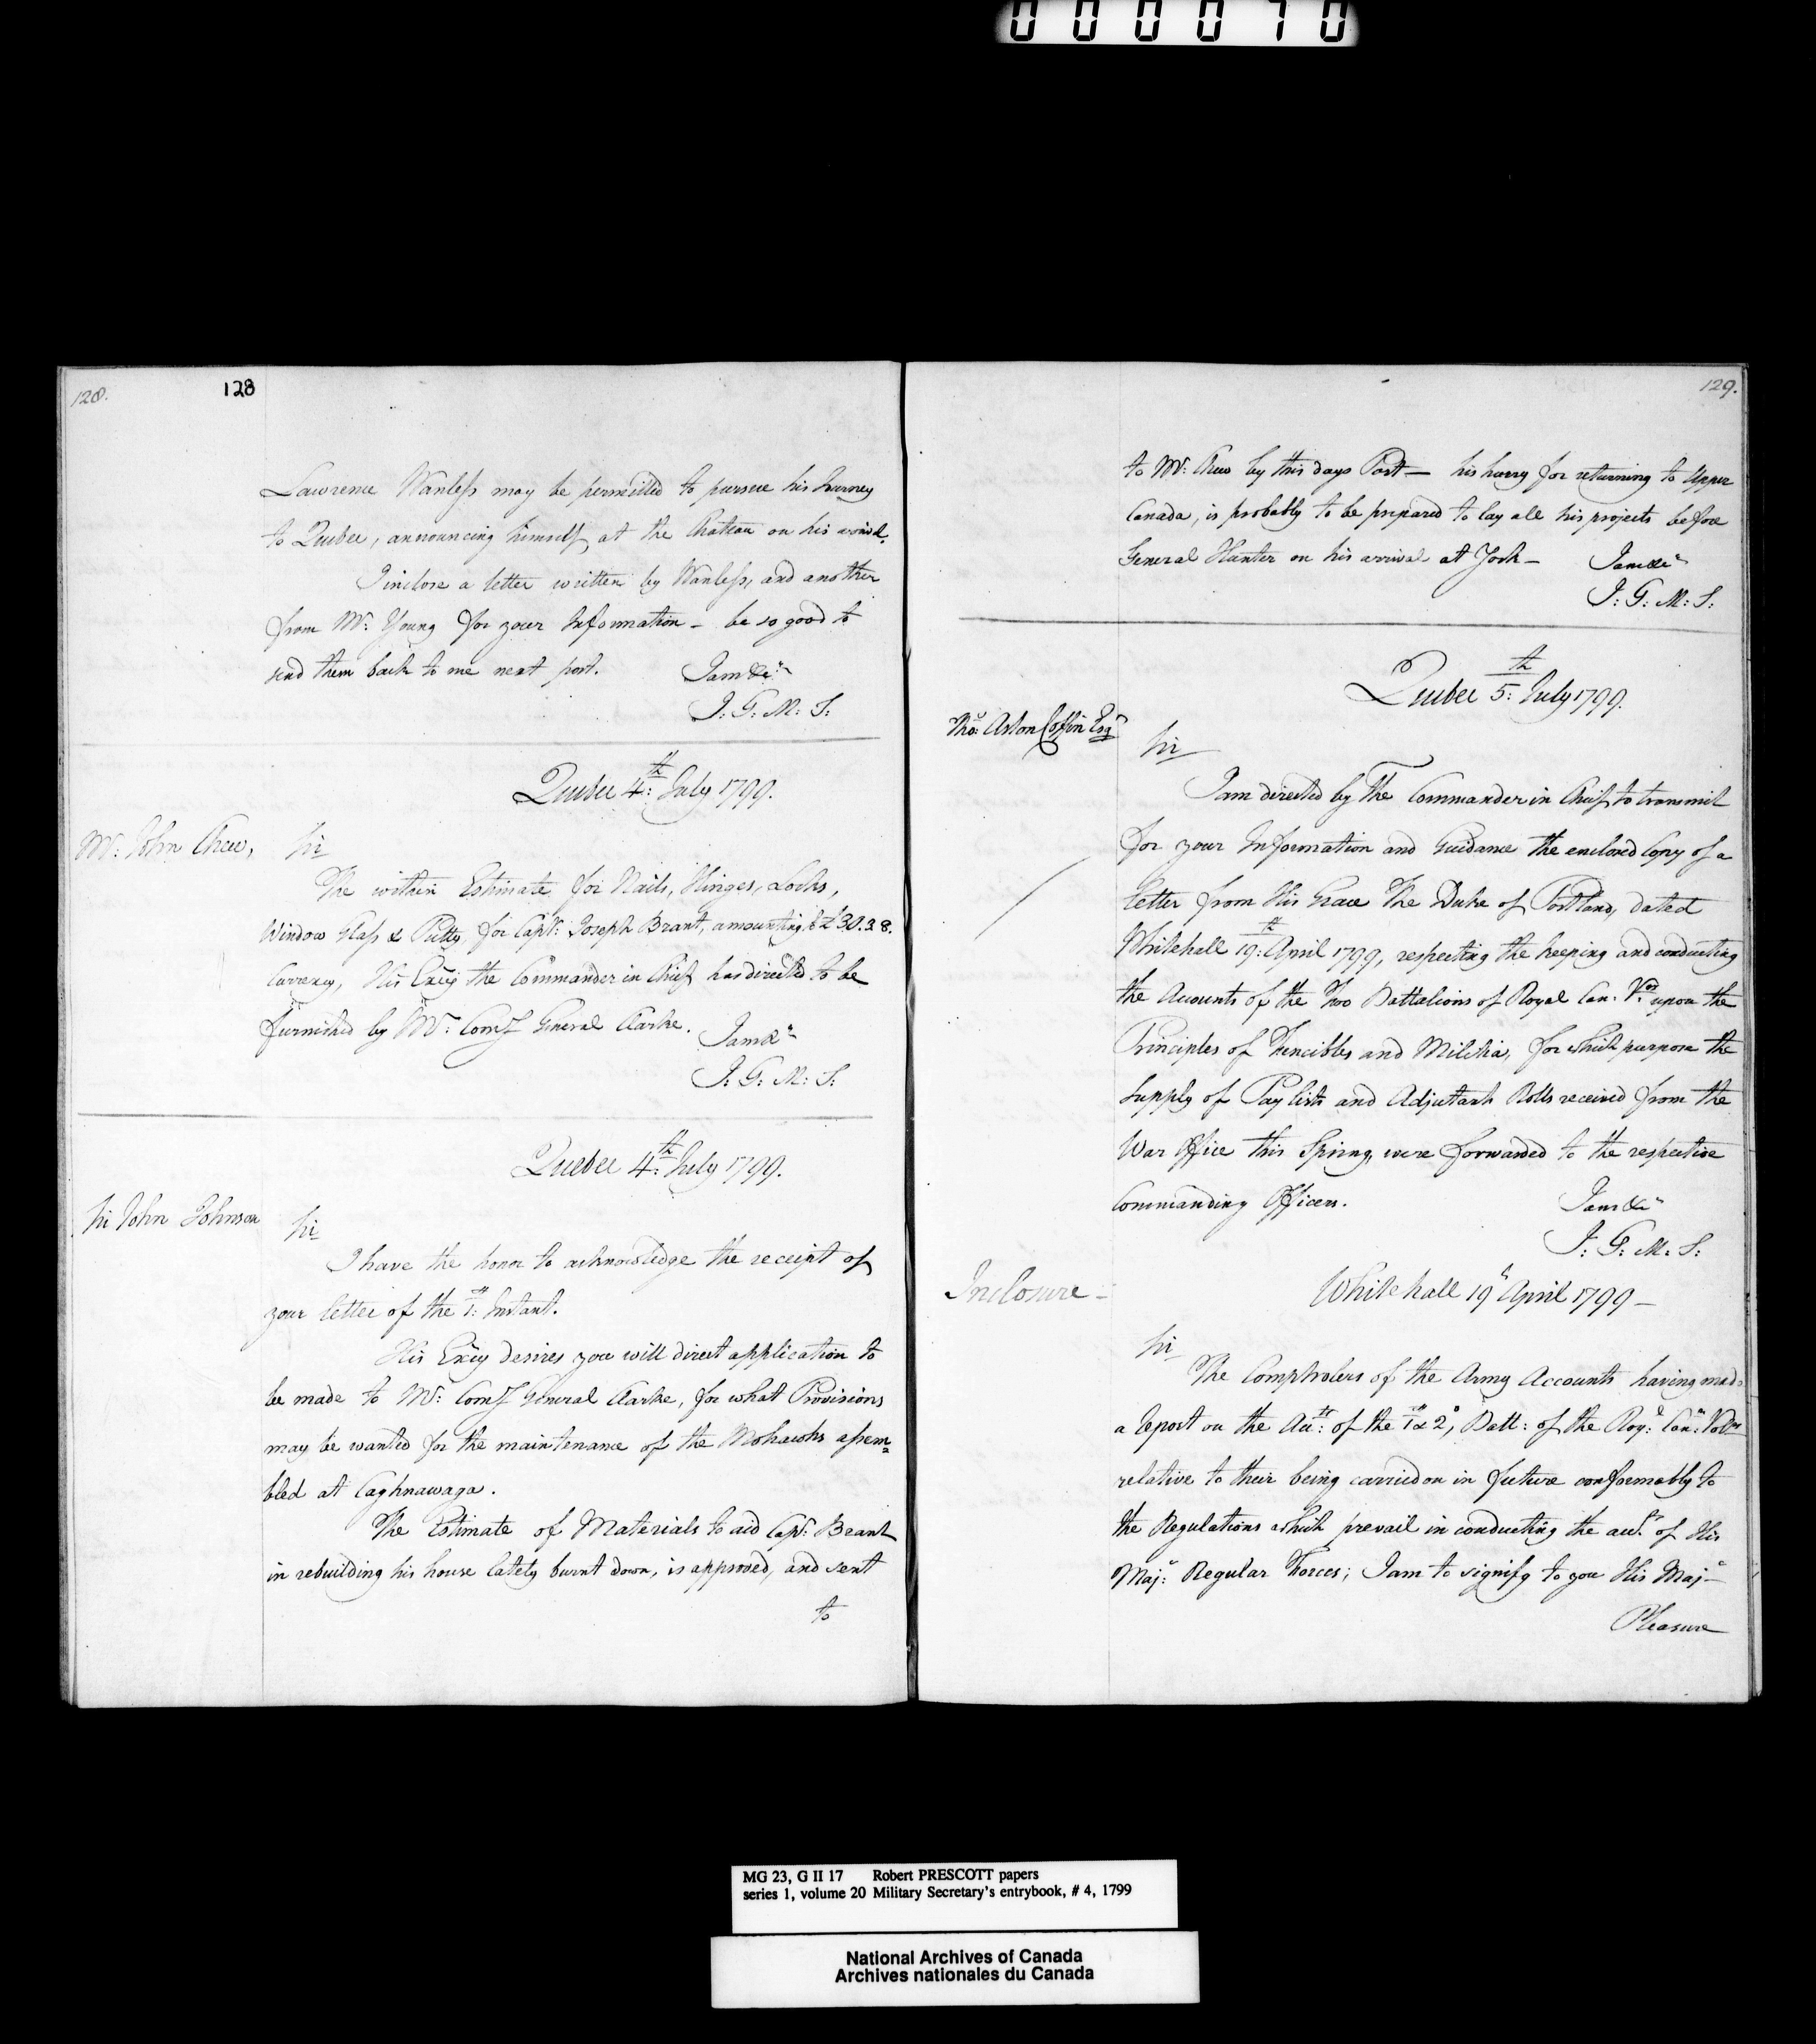 000070
128.
128
Lawrence Wanless may be permitted to pursue his Journey
to Quebec, announcing himself at the Chateau on his arrival.
I inclose a letter written by Wanless, and another
from Mr: Young for your Information – be so good to
send them back to me next post. I am &c
J: G: M: S:
Quebec 4th: July 1799.
Mr: John Chew,
Sir
The within Estimate for Nails, Hinges, Locks,
Window Glass & Putty, for Capt: Joseph Brant, amounting to £30.3.8.
Currency, His Excy the Commander in Chief has directed to be
furnished by Mr: Comy General Clarke. I am &c
J: G: M: S:
Quebec 4th: July 1799.
Sir John Johnson
Sir
I have the honor to acknowledge the receipt of
your letter of the 1st: Instant.
His Excy desires you will direct application to
be made to Mr: Comy General Clarke, for what Provisions
may be wanted for the maintenance of the Mohawks assem=
bled at Caghnawaga.
The Estimate of Materials to aid Capt: Brant
in rebuilding his house lately burnt down, is approved, and sent
to
129.
to Mr: Chew by this days Post – his hurry for returning to Upper
Canada, is probably to be prepared to lay all his projects before
General Hunter on his arrival at York – I am &c
J: G: M: S:
Quebec 5th: July 1799.
Thos: Aston Coffin Esqr
Sir
I am directed by The Commander in Chief to transmit
for your Information and Guidance the enclosed Copy of a
Letter from His Grace The Duke of Portland, dated
Whitehall 19th: April 1799, respecting the keeping and conducting
the Accounts of the Two Battalions of Royal Can: Vors: upon the
Principles of Fencibles and Militia, for which purpose the
supply of Pay lists and Adjutants Rolls received from the
War Office this Spring, were forwarded to the respective
Commanding Officers. I am &c
J: G: M: S:
Inclosure –
Whitehall 19th April 1799 –
Sir
The Comptrolers of the Army Accounts having made
a Report on the Accts: of the 1st & 2d, Batt: of the Royl: Cann: Volrs
relative to their being carried on in future conformably to
the Regulations which prevail in conducting the accts. of His
Majs: Regular Forces; I am to signify to you His Majs
Pleasure
MG 23, G II 17 Robert PRESCOTT papers
series 1, volume 20 Military Secretary's entrybook, # 4, 1799
National Archives of Canada
Archives nationales du Canada